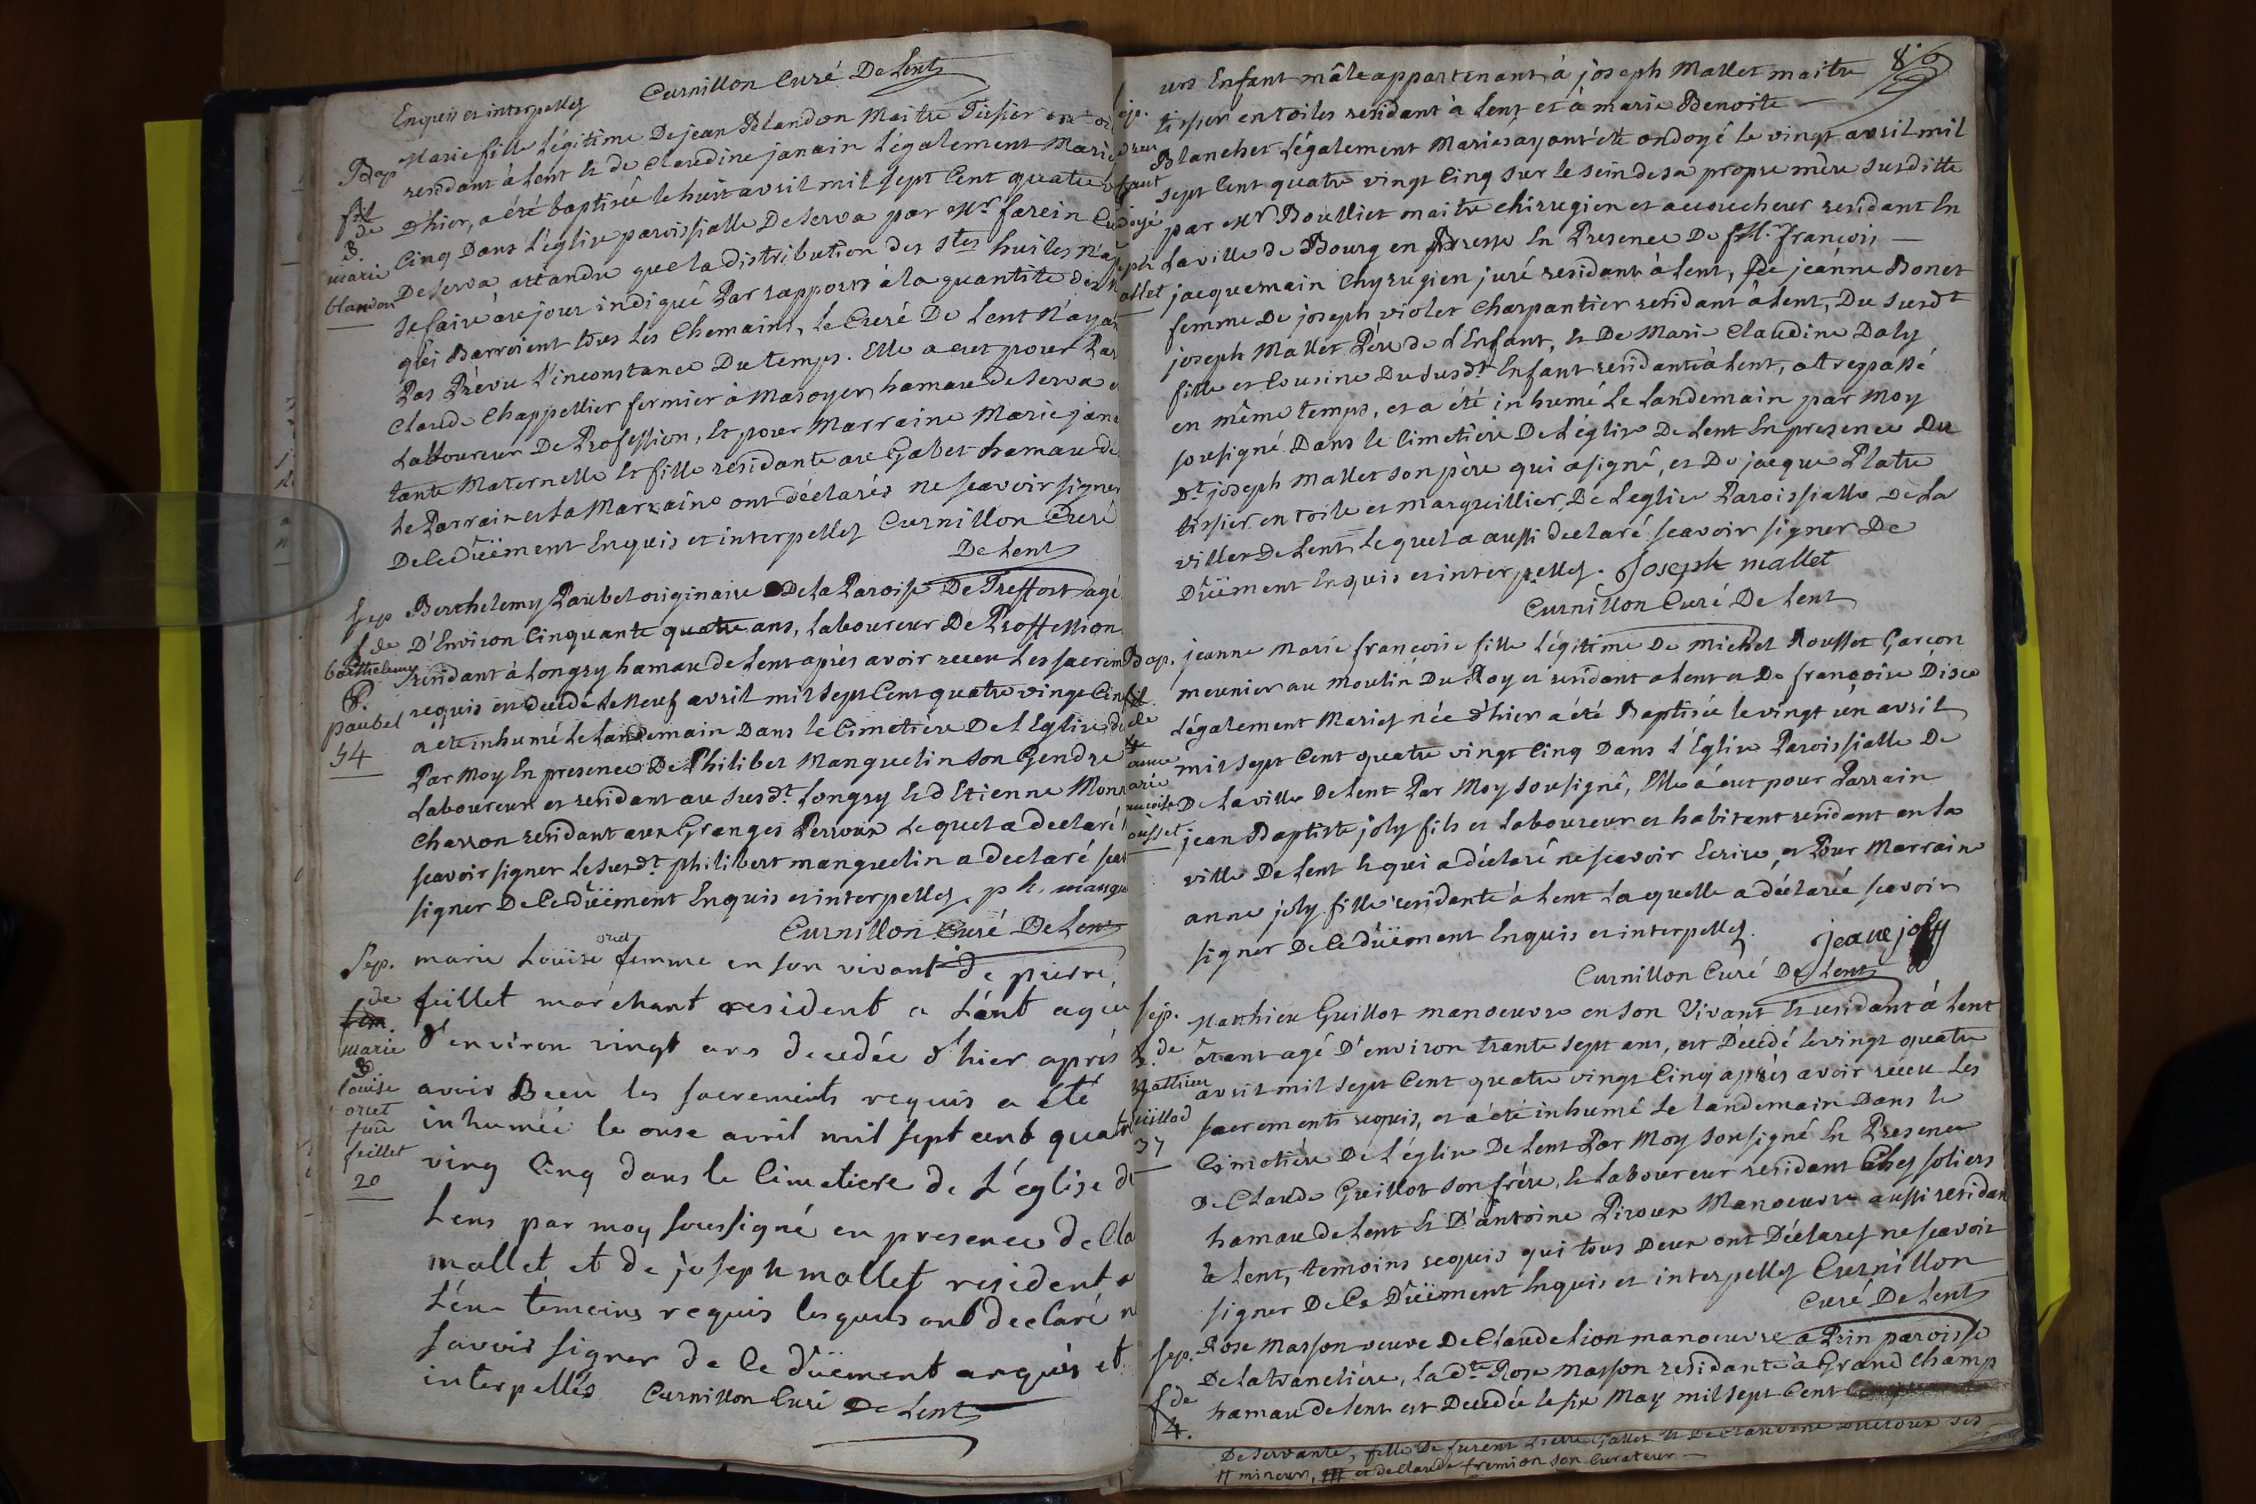 Enquis et interpellez Curnillon Curé De Lent
Bap
fil
de
8.
marie
blandon
Marie fille Légitime De jean Blandon Maitre Tissier
residant à Lent & de Claudine janain Légalement Marie
D'hier, a été baptisée le huit avril mil sept Cent quatre
Cinq Dans L'église paroissialle De Serva par Mr. farein Cu
De Serva attandu que la distribution des stes huiles n'a
se faire au jour indiqué Par rapport à la quantité de
qui Barroient tous Les Chemains, Le Curé De Lent N'ayan
Pas Prévu L'inconstance Du temps. Elle a eut pour Par
Claude Chappellier fermier à Masoyer hamau de Serva
Laboureur De Profession, Et pour Marraine Marie jana
tante Maternelle Et fille residante au Gabet hamau de
Le Parrain et La Marraine ont déclarés ne scavoir signer
De Ce Düement Enquis et interpellez Curnillon Curé
De Lent
sep
f de
barthelemy
P.
paubel
54
Berthelemy Paubel originaire De La Paroisse De Treffort agé
D'Environ Cinquante quatre ans, Laboureur De Proffession
residant à Longry hamau de Lent après avoir receu Les sacrem
requis est decedé Le Neuf avril mil sept Cent quatre vingt Cin
a eté inhumé Le Landemain Dans le Cimetière De L'Eglise de
Par Moy En presence De Philibet Manguelin son Gendre
Laboureur et residant au susdt. Longry & d'Etienne Mon
Charron residant aux Granges Perroux Lequel a declaré
scavoir signer Le susdt. philibert manguelin a declaré scav
signer De Ce Düement Enquis et interpellez. ph. mangu
Curnillon Curé De Lent
Sep.
de
fem.
marie
louise
oriet
fme
feillet
20
marie Louise oriet femme en son vivant de pierre
feillet marchant resident a Lent agée
d'environ vingt ans decedée d'hier aprés
avoir Recu les sacrements requis a été
inhumée le onse avril mil sept cent quatr
ving Cinq dans le Cimetiere de L'église de
Lens par moy soussigné en presence de Cla
mallet et de joseph mallet resident a
Lén temoins requis lesquels ont declaré n
savoir signer de Ce düement anquis et
interpellés Curnillon Curé De Lent
89
un Enfant mâle appartenant à joseph Mallet maitre
tissier en toiles residant à Lent et à marie Benoite
Blanchet Légalement Mariés ayant été ondoyé le vingt avril mil
sept Cent quatre vingt Cinq sur le sein de sa propre mère susditte
par Mr Boulliet maitre chirugien et accoucheur residant En
La ville de Bourg en Bresse En Presence De Mr. françois
jacquemain Chyrugien juré residant à Lent, De jeanne Bonet
femme De joseph violet Charpantier residant à Lent, Du susdt
joseph Mallet Père de L'Enfant, & De Marie Claudine Daly
fille et Cousine Du susdt. Enfant residant à Lent, a trepassé
en même temps, et a été inhumé Le Landemain par Moy
sousigné Dans le Cimetière De L'église De Lent En presence Du
Dt. joseph Mallet son père qui a signé, et De jacque Platre
tissier en toile et Marguillier De Leglise Paroissialle De La
ville De Lent Lequel a aussi declaré scavoir signer De
Düement Enquis et interpellez. Joseph mallet
Curnillon Curé De Lent
Bap.
jeanne Marie françoise fille Légitime De Michel Rousset Garçon
meunier au moulin Du Roy et residant a Lent et De françoise Disce
Légalement Mariez née d'hier a été Baptisée le vingt un avril
mil sept Cent quatre vingt Cinq Dans L'Eglise Paroissialle De
La ville De Lent Par Moy sousigné, Elle a eut pour Parrain
jean Baptiste joly fils et Laboureur et habitant residant en la
ville De Lent & qui a déclaré ne scavoir Ecrire, et Pour Marraine
anne joly fille residante à Lent Laquelle a déclarée scavoir
signer De Ce düement Enquis et interpellez. jeane joly
Curnillon Curé De Lent
sep.
de
Mathieu
guillod
37
Matthieu Guillot manoeuvre en son Vivant & residant à Lent
étant agé D'environ trante sept ans, est Décedé le vingt quatre
avril mil sept Cent quatre vingt Cinq aprés avoir receu Les
sacrements requis, et a été inhumé Le landemain Dans le
Cimetière De L'église De Lent Par Moy sousigné En Presence
De Claude Guillot son frére, & Laboureur residant Chez soliers
hamau de Lent & D'antoine Piroux Manoeuvre aussi residan
a Lent, temoins requis qui tous Deux ont Déclarez ne scavoir
signer De Ce Düement Enquis et interpellez Curnillon
Curé De Lent
sep.
f de
4.
Rose Masson veuve De Claude Lion manoeuvre a Prin paroisse
De La tranclière, La dte. Rose Masson residante à Grand Champ
hamau de Lent est Decedée le six May mil sept Cent
De servante, fille De furent Pierre Gallet & De Claudine
mineur, et de Claude fremion son Curateur